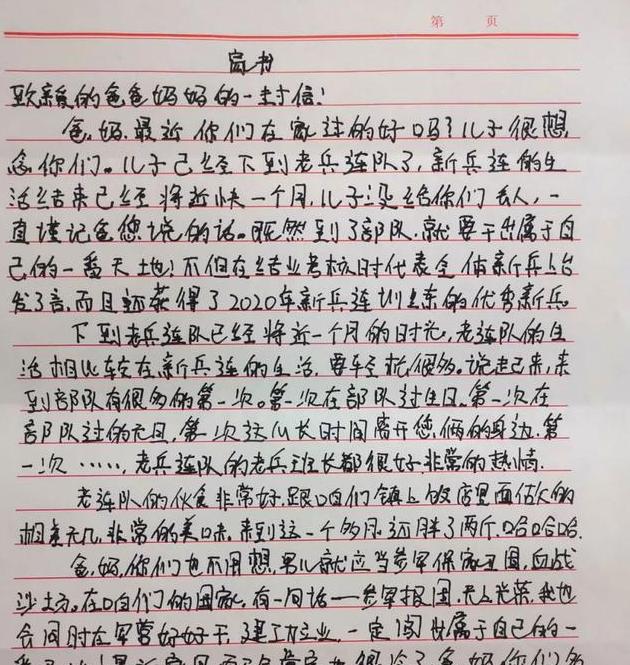 第 页
家书
致亲爱的爸爸妈妈的一封信!
爸、妈、最近你们在家过的好吗?儿子很想
念你们。儿子已经下到老兵连队了,新兵连的生
活结束已经将近快一个月,儿子没给你们丢人,一
直谨记爸您说的话。既然到了部队,就要干出属于自
己的一番天地!不但在结业考核时代表全体新兵上台
发了言,而且还获得了2020年新兵连训练的优秀新兵。
下到老兵连队已经将近一个月的时光,老连队的生
活相比较在新兵连的生活,要轻松很多。说起来,来
到部队有很多的第一次。第一次在部队过生日、第一次在
部队过的元旦,第一次这么长时间离开您俩的身边,第
一次……,老兵连队的老兵班长都很好非常的热情.
老连队的伙食非常好,跟咱们镇上饭店里面估大的
相差无几,非常的美味.来到这一个多月,还胖了两斤,哈哈哈.
爸,妈,你们也不用想,男儿就应当参军保家卫国,血战
沙场.在咱们的国家,有一句话——参军报国,无上光荣,我也
会同时在军营好好干,建功立业,一定闯出属于自己的一